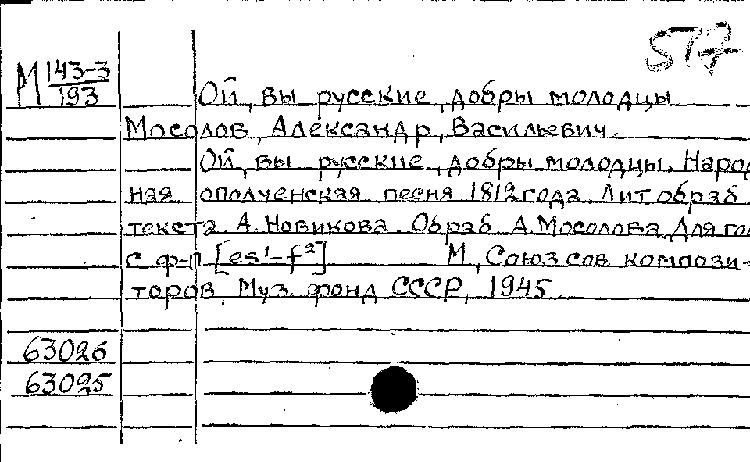 517
М 143-3
193
Ой, вы русские, добры молодцы
Мосолов, Александр, Васильевич.
Ой, вы русские, добры молодцы. Народ
ная ополченская песня 1812 года. Лит обраб
текста А. Новикова. Обраб А. Мосолова Для гол
с ф-п [es¹-f²] М, Союз сов компози-
торов Муз. фонд СССР, 1945
63026
63025